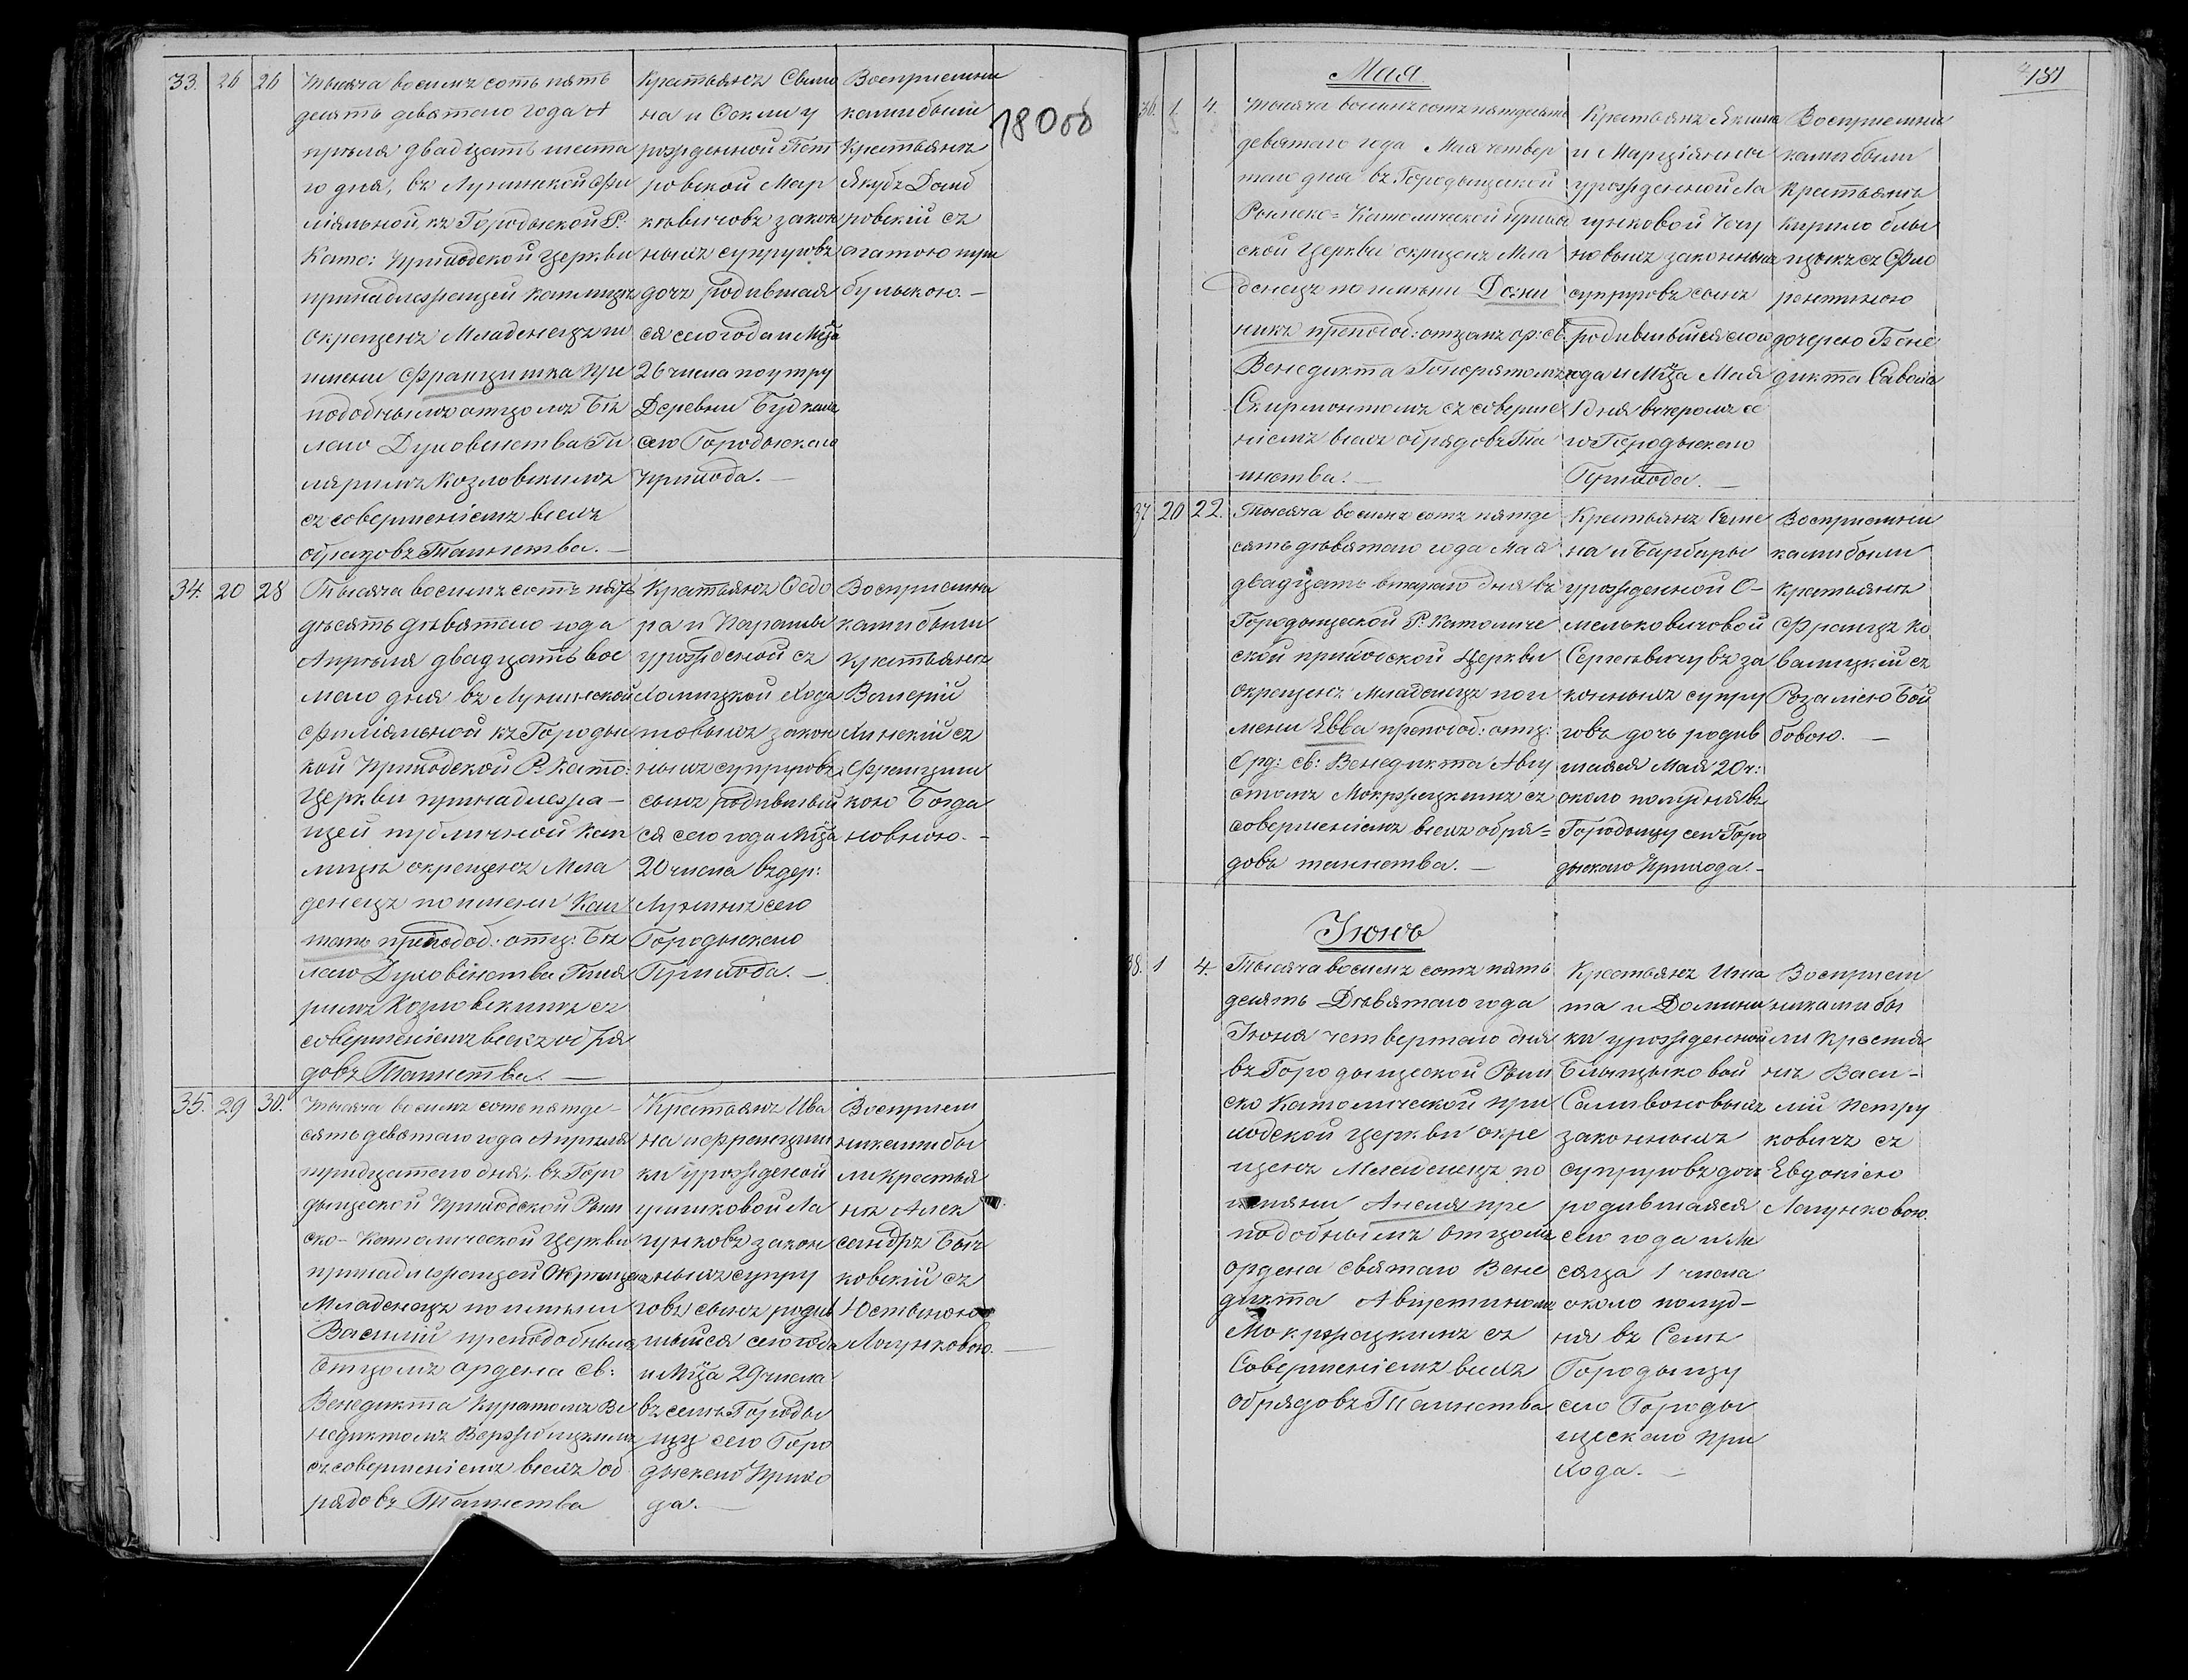 33. 26 26
Тысяча восемъ сотъ пять
десять девятого года А
прѣля двадцать шеста
го дня, въ Лунинской Фи
ліяльной, къ Городыской Р.
Като: Приходской Церкви
принадлежащей каплицѣ
Окрещенъ Младенецъ по
имени Францишка Пре
подобнымъ отцомъ Бѣ
лаго Духовенства Ги
ляримъ Козловскимъ
съ совершеніемъ всехъ
обрядовъ Таинства. —
Крестьянъ Симо
на и
рожденной Пет
ровской Мар
кевичовъ закон
ныхъ супруговъ
дочь родившая
ся сего года и Мца
26 числа поутру
Деревни
сего Городыского
прихода. —
Восприемни
ками были
Крестьяне
Якубъ Домб
ровскій съ
Агатою
булькою. —
180об
34. 20 28
Тысяча восемъ сотъ пять
десять девятого года
Апрѣля двадцать вос
мого дня въ Лунинской
Филіяльной къ Городыс
кой Приходской Р. Като:
Церкви принадлежа-
щей публичной Кап
лицѣ окрещенъ Мла
денецъ по имени Каи
танъ преподоб: отц: Бѣ
лаго Духовенства Гиля
римъ Козловскимъ съ
совершеніемъ всехъ обря
довъ Таинства. —
Крестьянъ Федо
ра и Параски
урожденой съ
Хо
товыхъ закон
ныхъ супруговъ
сынъ родившый
ся сего года Мца
20 числа въ дер:
Лунинѣ сего
Городыского
Прихода. —
Восприемни
ками были
крестьяне
Валерій
Линскій съ
Франциш
кою Богда
новною. -
35. 29 30.
Тысяча восемъ сотъ пятде-
сять девятого года Апрѣля
тридцатого дня, въ Горо
дыщеской Приходской Рим
ско-Католической Церкви
принадлежащей Окрещенъ
Младенецъ по имени
Василій преподобнымъ
Отцомъ ордена св:
Венедикта Куратомъ Ве
недиктомъ Вержбицкимъ
съ совершеніемъ всехъ об
рядовъ Таинства
Крестьянъ Ива
на и Францишки
ки урожденой
ковой Ла
гуновъ закон
ныхъ супру
говъ сынъ родив
шыйся сего года
и Мца 29 числа
въ селѣ Городы
щу сего Горо
дыского Прихо
да. —
Восприем
никами бы
ли Крестья
не Алек
сандръ Быч
ковскій съ
Юстыною
Лагунковою. —
181
Мая
36. 1. 4.
Тысяча восемъ сотъ пятдесять
девятого года Мая четвер
того дня въ Городыщеской
Римско-Католической прихо
ской Церкви окрещенъ Мла
денецъ по имени Доми
никъ преподоб: отцемъ ор: св.
Венедикта Гоноратомъ
Скирмонтомъ съ соверше
ніемъ всехъ обрядовъ Таи
нства. —
Крестьянъ Якима
и Марціянны
урожденной Ла
гунковой
новыхъ законныхъ
супруговъ сынъ
родившыйся сего
года и Мца Мая
1 дня вечеромъ се
го Городыского
Прихода. —
Восприемни
ками были
крестьяне
Кирило
съ Фло
рентиною
дочерею Бене
дикта
37. 20 22.
Тысяча восемъ сотъ пятде
сять девятого года Мая
двадцать второго дня въ
Городыщеской Р. Католиче
ской приходской Церкви
окрещенъ Младенецъ по и
мени Евва преподоб: отц:
Орд: св: Венедикта Авгу
стомъ Мокржецкимъ съ
совершеніемъ всехъ обря=
довъ таинства. —
Крестьянъ Семе
на и Барбары
урожденной О-
мельковичовой
Сергіевичувъ за
конныхъ супру
говъ дочь родив
шаяся Мая 20 ч:
около полудня въ
Городыщу сего Горо
дыского Прихода. —
Восприемни
ками были
крестьяне
Францъ Ко
валицкій съ
Розалiею Бои
бовою. —
Іюнь
38. 1 4.
Тысяча восемъ сотъ пять
десять Девятого года
Іюня четвертого дня
въ Городыщеской Рим
ско Католической при
ходской церкви окре
щенъ Младенецъ по
имени Анеля пре
подобнымъ отцомъ
ордена святого Вене
дикта Августиномъ
Мокржецкимъ съ
Совершеніемъ всехъ
обрядовъ Таинства
Крестьянъ Игна
та и Домини
ки урожденной
ковой
Саливоновыхъ
законныхъ
супруговъ дочь
родившаяся
сего года и Ме
сяца 1 числа
около полуд-
ня въ Селѣ
Городыщу
сего Городы
щеского при
хода. —
Восприем
никами бы
ли Крестья
не Васи-
лій Петру
ковичъ съ
Евдокіею
Лагунковою.